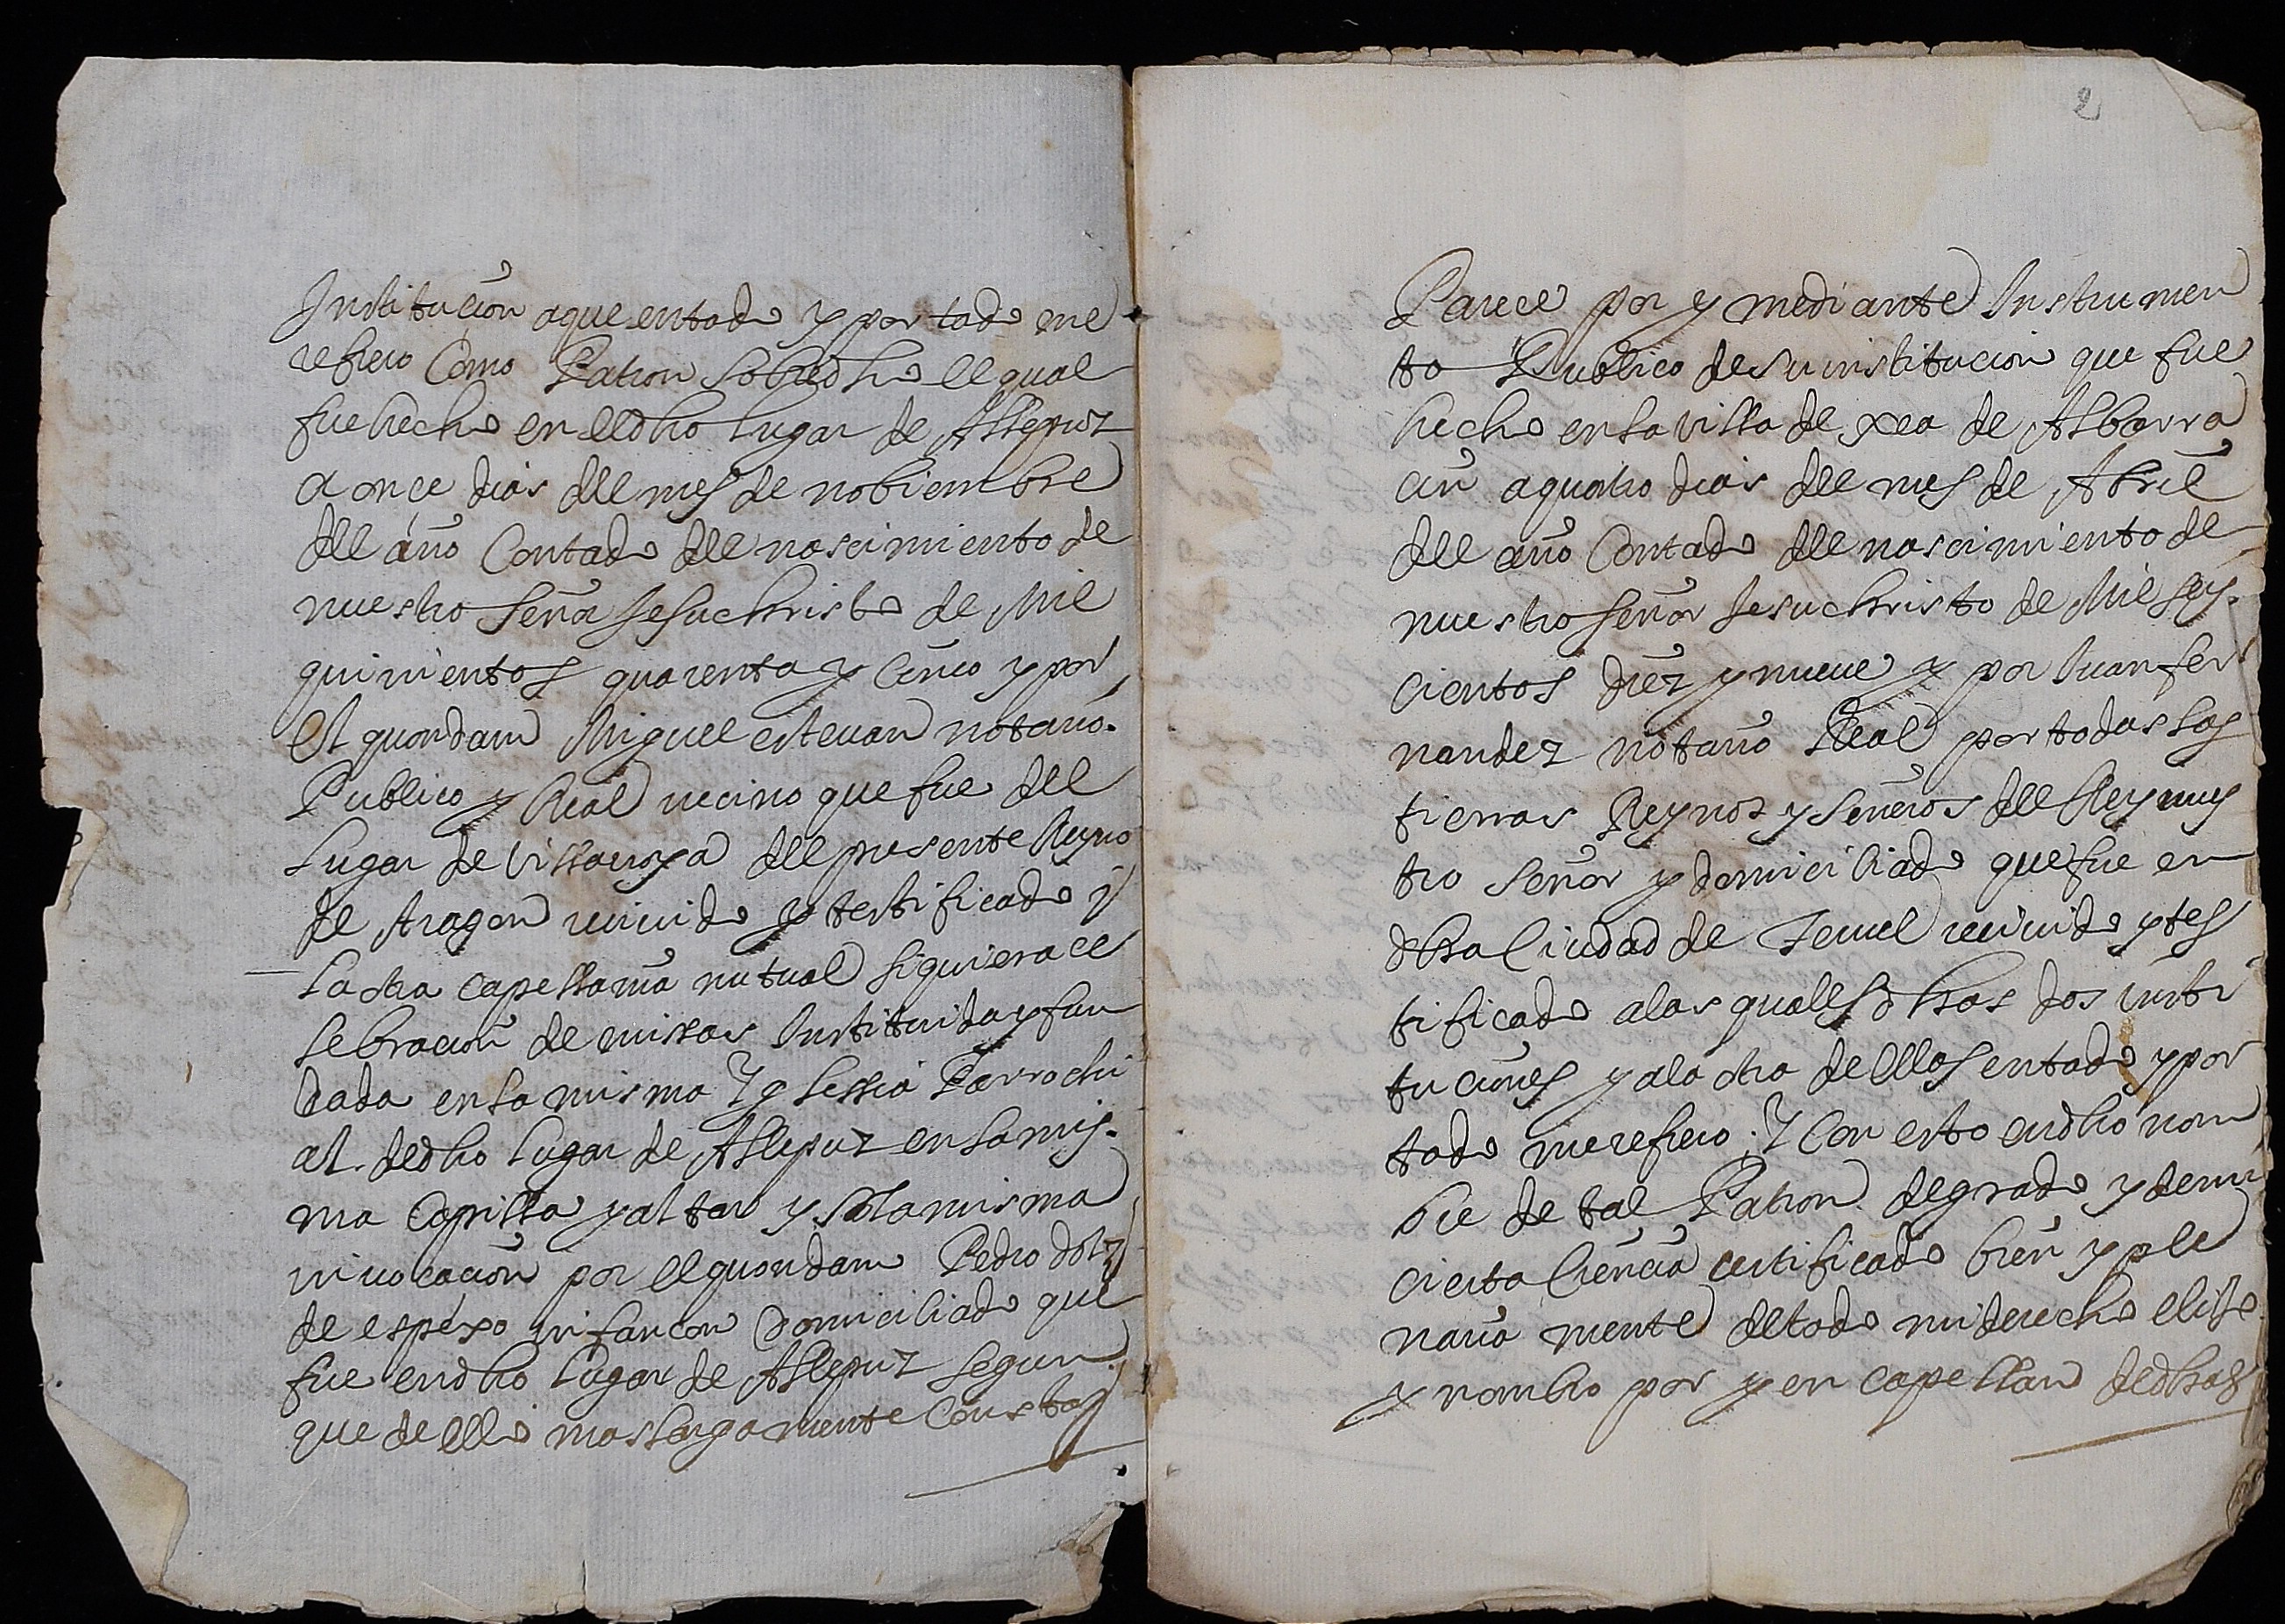 Institución aque entodo y por todo me
refiero Como Patron Sobredho el qual
fue hecho en el dho lugar de Allepuz
a once dias del mes de nobiembre
del año Contado del nascimiento de
nuestro Señor Jesuchristo de Mil
quinientos quarenta y Cinco y por
el quondam Miguel esteuan notario
Publico y Real vecino que fue del
Lugar de Villarroya del presente Reyno
de Aragon reciuido y testificado y
la otra capellania nutual siquiere ce
lebracion de missas Instituida y fun
dada en la misma Yglessia Parrochi
al dedho lugar de Allepuz en la mis
ma Capilla y altar y So la misma
inuocación por el quondam Pedro dolz
de espexo infancon Domiciliado que
fue en dho lugar de Allepuz segun
que de ello mas largamente Consta y
2
Parece por y mediante Instrumen
to Publico de su institucion que fue
hecho en la villa de xea de Albarra
cin a quatro dias del mes de Abril
del año Contado del nascimiento de
nuestro señor Jesuchristo de Mil sey
cientos diez y nueue y por Juan fer
nandez notario Real por todas las
tierras Reynos y señorios del Rey nues
tro Señor y domiciliado que fue en
dha Ciudad de Teruel reciuido y tes
tificado a las quales dhas dos insti
tuciones y a la otra dellas entodo y por
todo me refiero; Y Con esto en dho nom
bre de tal Patron de grado y de mi
cierta Ciencia certificado bien y ple
nariamente de todo mi derecho elijo
y nombro por y en capellan de dhas